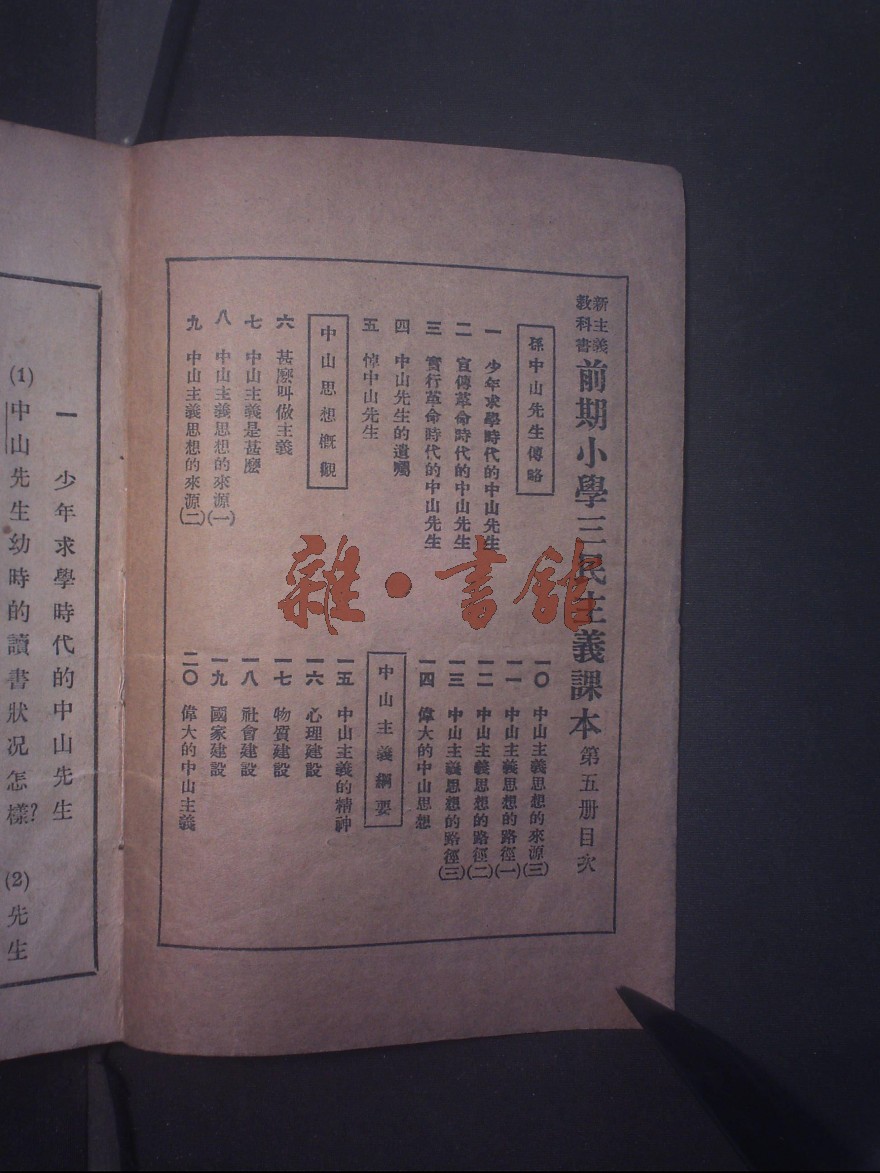 新主義教科書 前期小學三民主義課本 第五册目次
孫中山先生傳略
一 少年求學時代的中山先生
二 宣傳革命時代的中山先生
三 實行革命時代的中山先生
四 中山先生的遺囑
五 悼中山先生
中山思想概觀
六 甚麼叫做主義
七 中山主義是甚麼
八 中山主義思想的來源(一)
九 中山主義思想的來源(二)
一〇 中山主義思想的來源(三)
一一 中山主義思想的路徑(一)
一二 中山主義思想的路徑(二)
一三 中山主義思想的路徑(三)
一四 偉大的中山思想
中山主義綱要
一五 中山主義的精神
一六 心理建設
一七 物質建設
一八 社會建設
一九 國家建設
二〇 偉大的中山主義
一 少年求學時代的中山先生
(1)中山先生幼時的讀書狀况怎樣? (2)先生
雜·書館